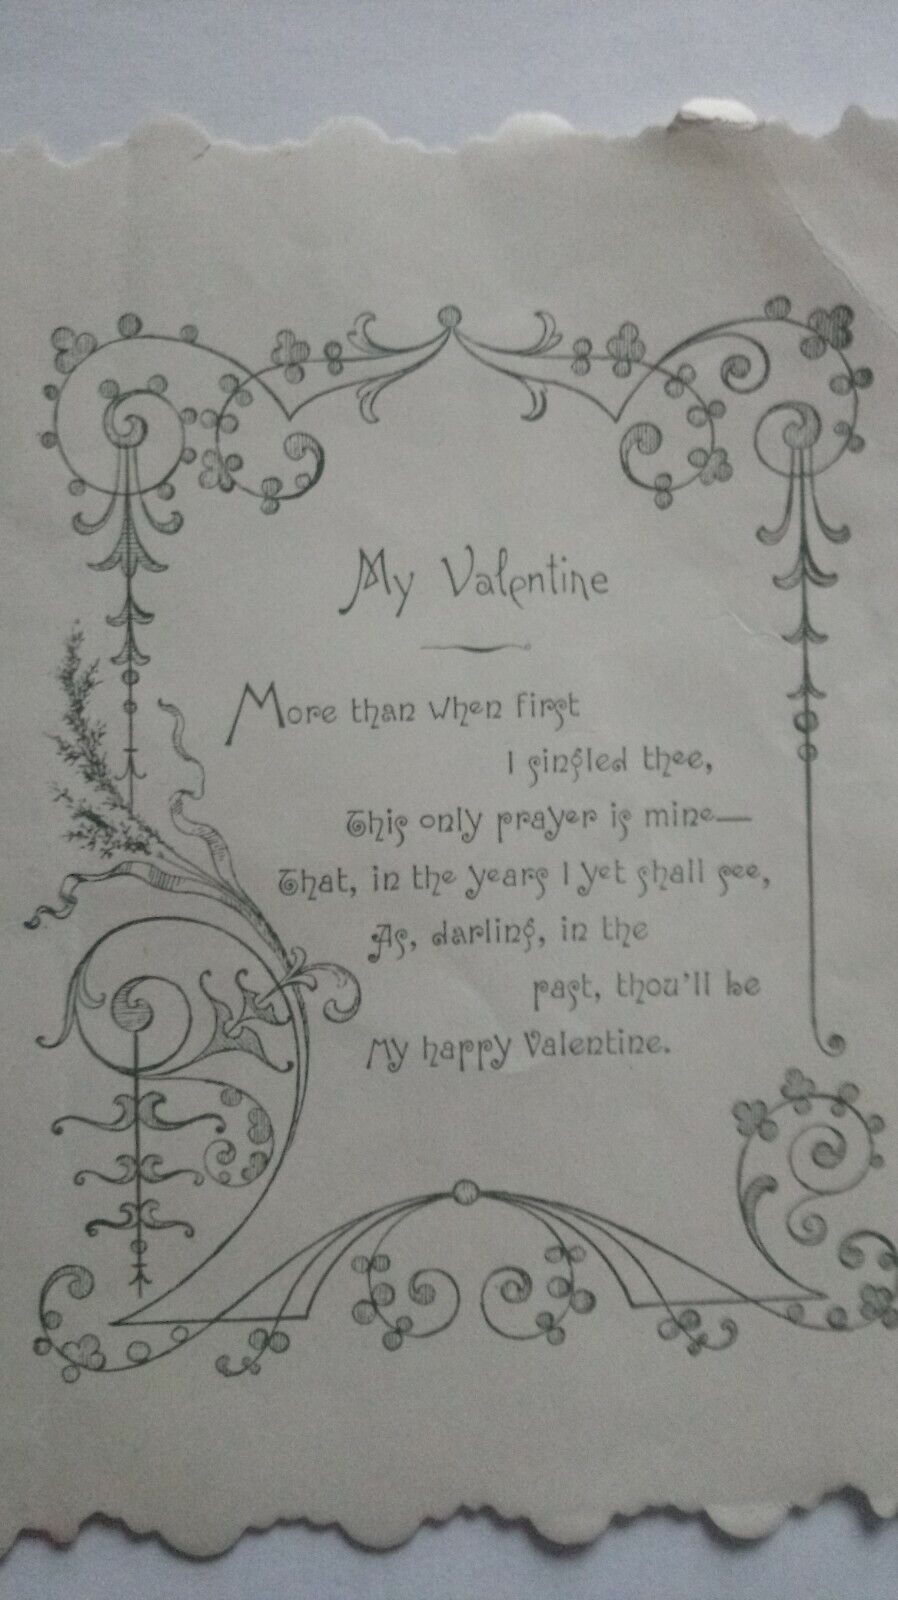 My Valentine
More than when first
I singled thee,
This only prayer is mine—
That, in the years I yet shall see,
As, darling, in the
past, thou'll be
My happy Valentine.